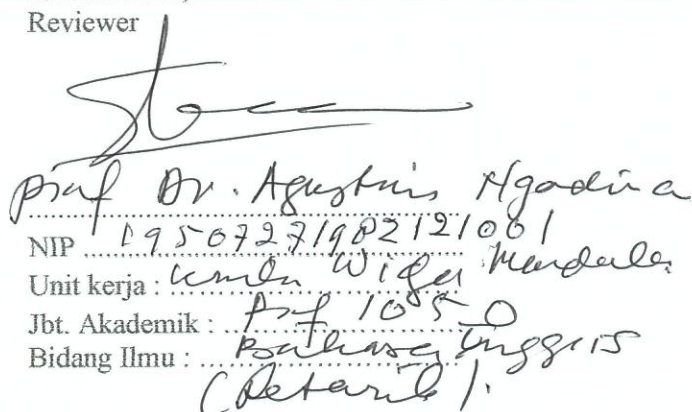 Reviewer
Prof Dr. Agustinus Ngadiman
NIP 19507271982121001
Unit kerja : Widya Mandala
Jbt. Akademik : Prof 1050
Bidang Ilmu : Bahasa Inggris
(Retorik).